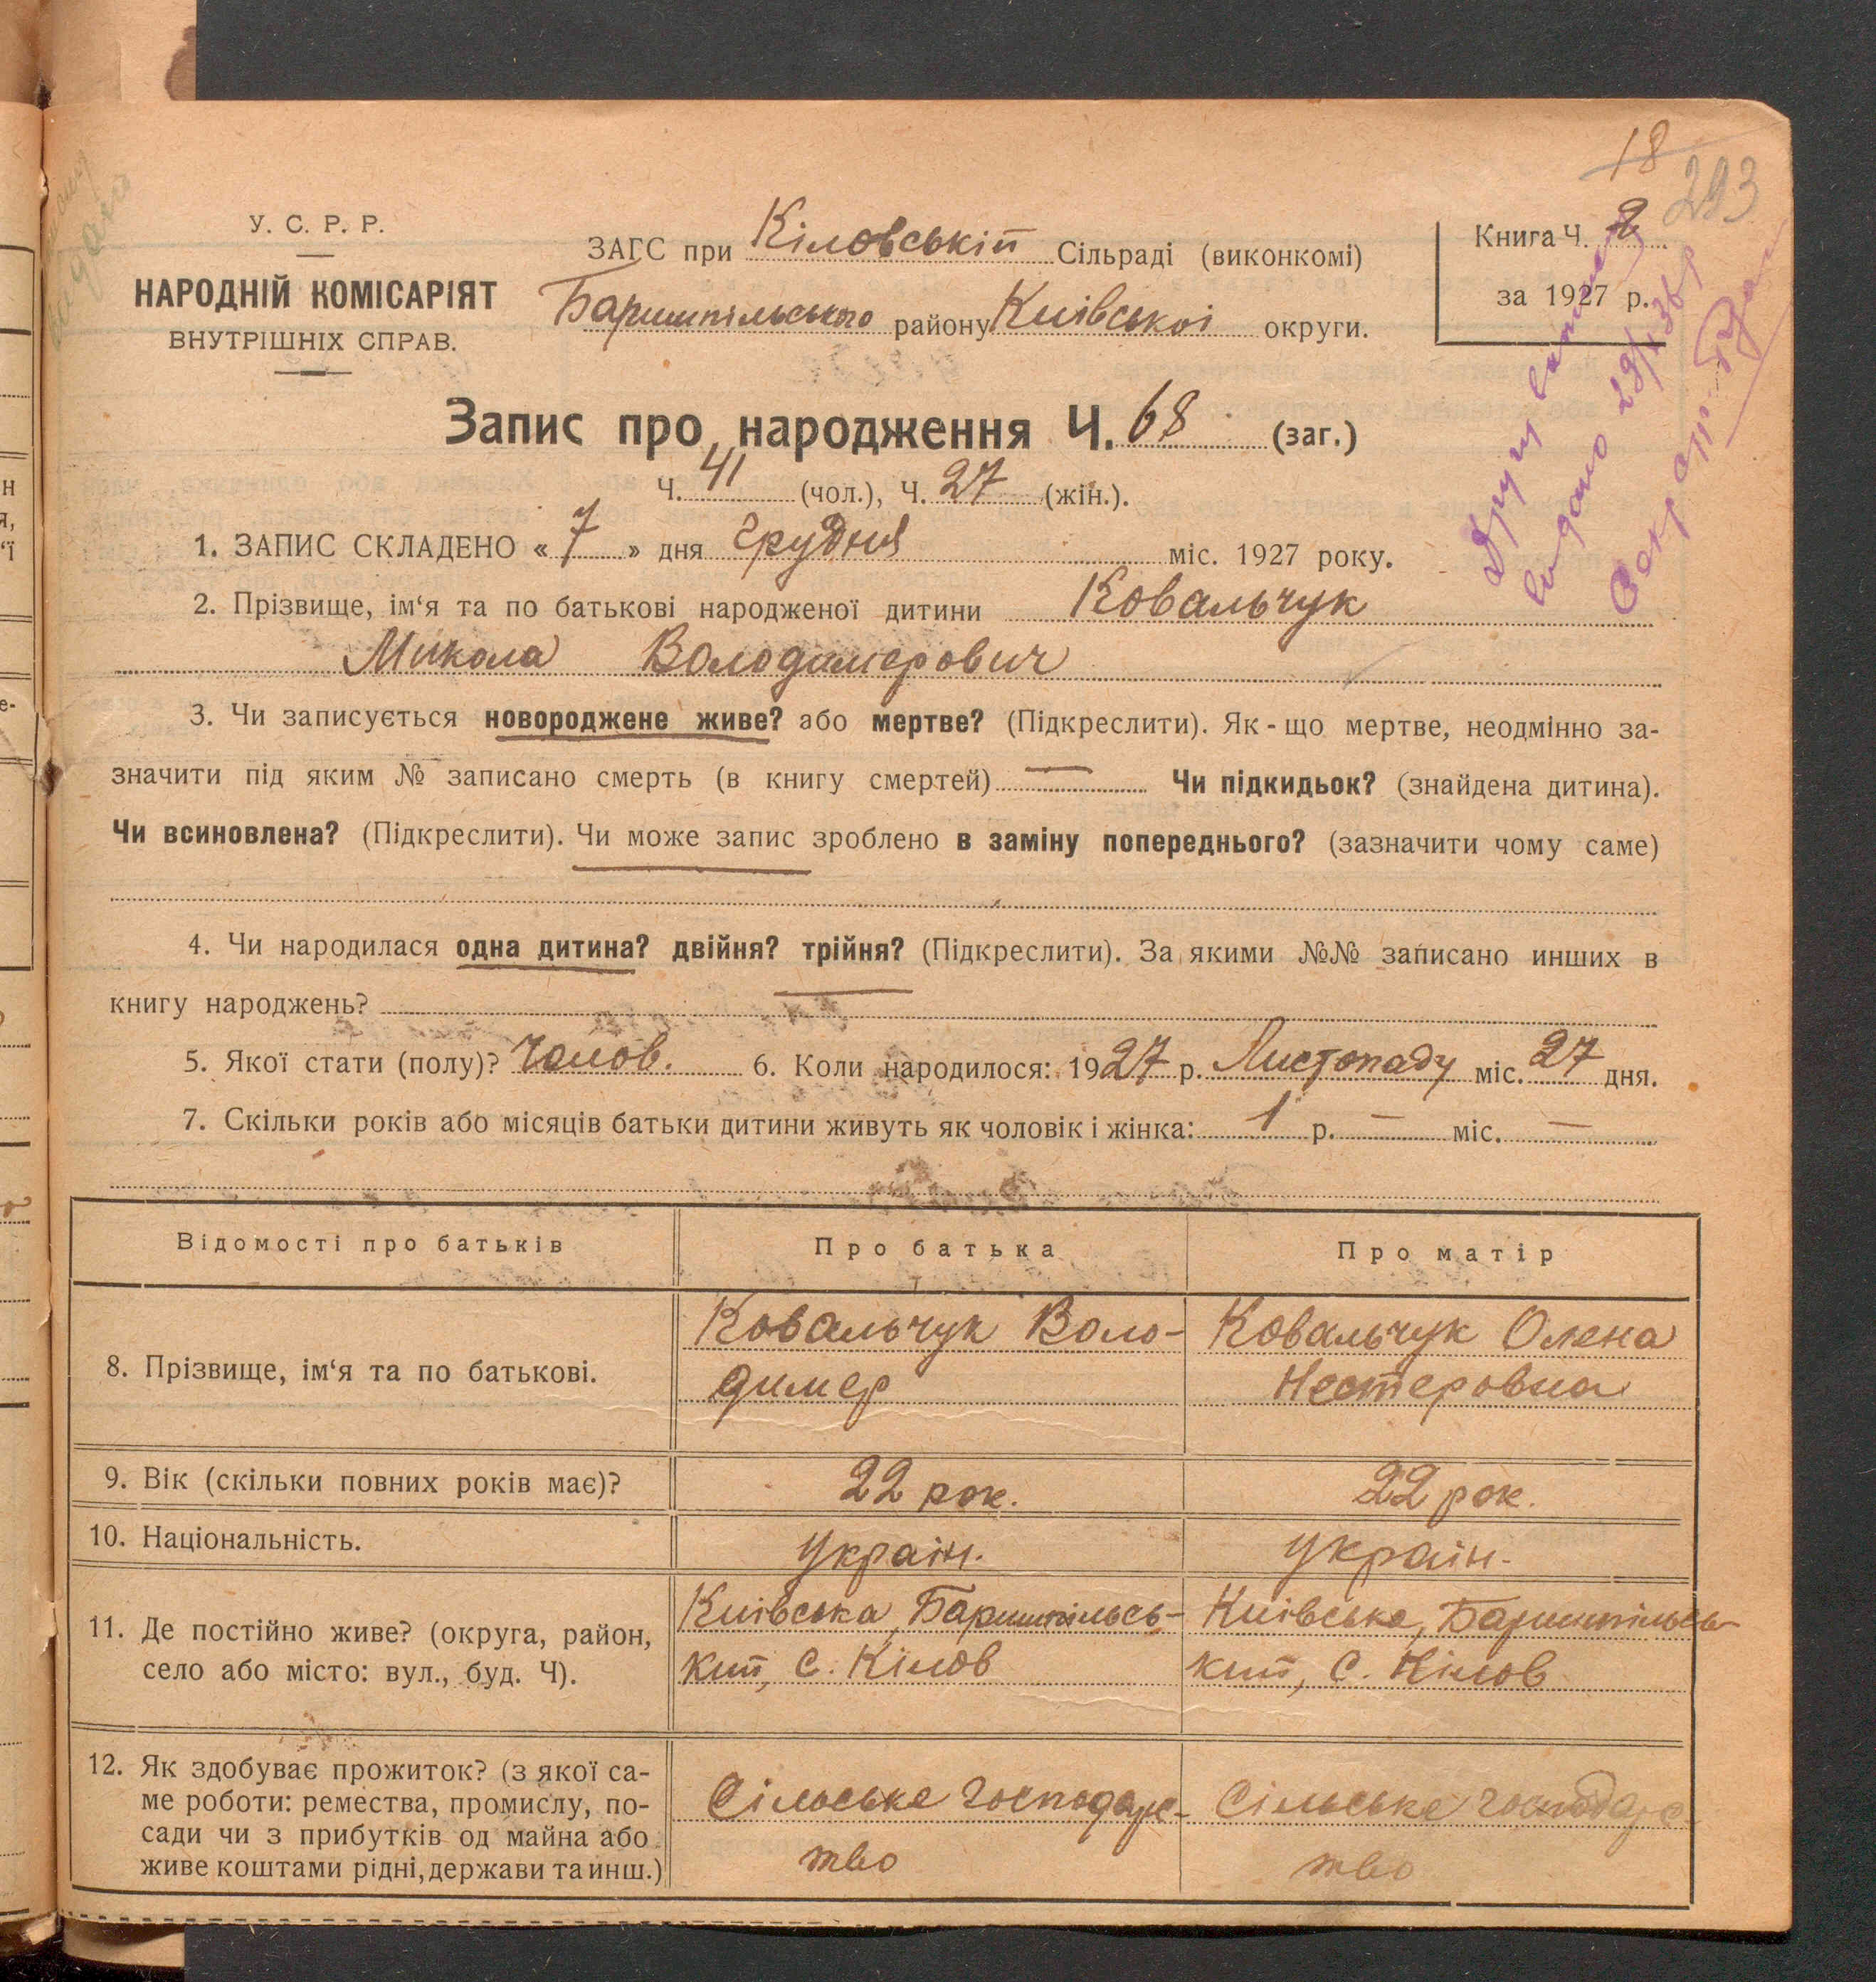 18
293
У. С. Р. Р.
НАРОДНІЙ КОМІСАРІЯТ
ВНУТРІШНІХ СПРАВ.
ЗАГС при Кіловській Сільраді (виконкомі)
Баришпільського району Київської округи.
Книга Ч. 2
за 1927 р.
Запис про народження Ч. 68 (заг.)
Ч. 41 (чол.), Ч. 27 (жін.).
1. ЗАПИС СКЛАДЕНО « 7 » дня Грудня міс. 1927 року.
2. Прізвище, ім‘я та по батькові народженої дитини Ковальчук
Микола Володимерович
3. Чи записується новороджене живе? або мертве? (Підкреслити). Як-що мертве, неодмінно за-
значити під яким № записано смерть (в книгу смертей) — Чи підкидьок? (знайдена дитина).
Чи всиновлена? (Підкреслити). Чи може запис зроблено в заміну попереднього? (зазначити чому саме)
4. Чи народилася одна дитина? двійня? трійня? (Підкреслити). За якими №№ записано инших в
книгу народжень? —
5. Якої стати (полу)? Чолов. 6. Коли народилося: 1927 р. Листопаду міс. 27 дня.
7. Скільки років або місяців батьки дитини живуть як чоловік і жінка: 1 р. — міс. —
Відомості про батьків Про батька Про матір
8. Прізвище, ім‘я та по батькові.
Ковальчук Воло-
димер
Ковальчук Олена
Нестеровна
9. Вік (скільки повних років має)? 22 рок. 22 рок.
10. Національність. Україн. Україн.
11. Де постійно живе? (округа, район,
село або місто: вул., буд. Ч).
Київська, Баришпільсь-
кий, с. Кілов
Київська, Баришпільсь-
кий, с. Кілов
12. Як здобуває прожиток? (з якої са-
ме роботи: ремества, промислу, по-
сади чи з прибутків од майна або
живе коштами рідні, держави та инш.)
Сільське господарс-
тво
Сільське господарс
тво
видано